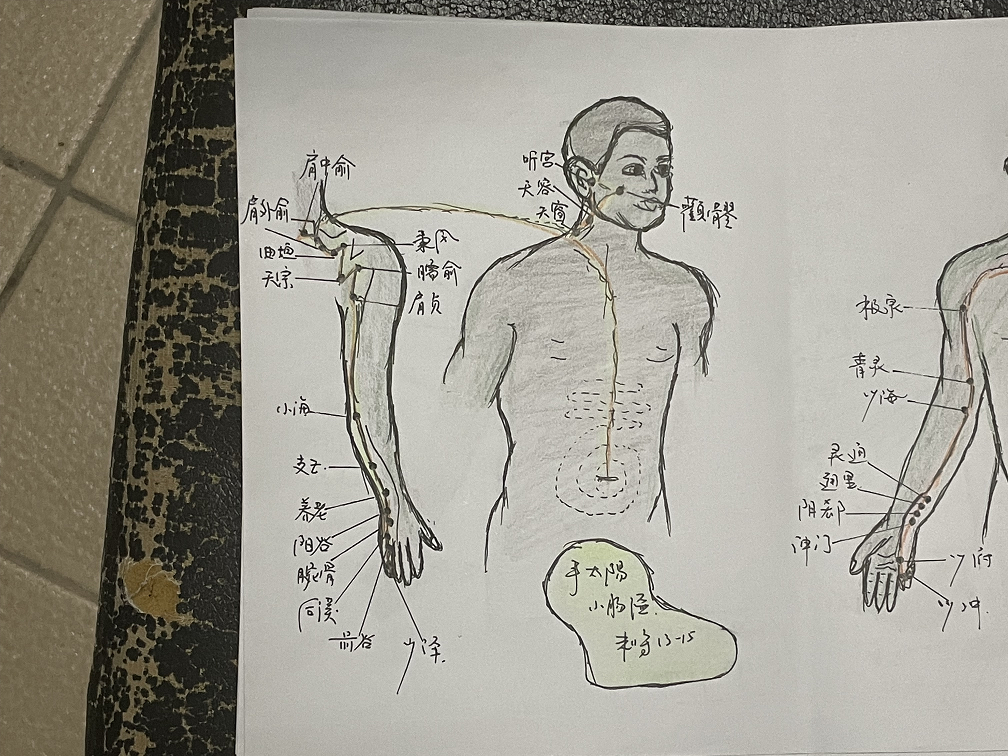 肩中俞
肩外俞
曲垣
天宗
秉风
臑俞
肩贞
小海
支正
养老
阳谷
腕骨
后溪
前谷
少泽
听宫
天容
天窗
颧髎
手太陽
小肠经
未时13-15
极泉
青灵
少海
灵道
通里
阴郄
神门
少府
少冲